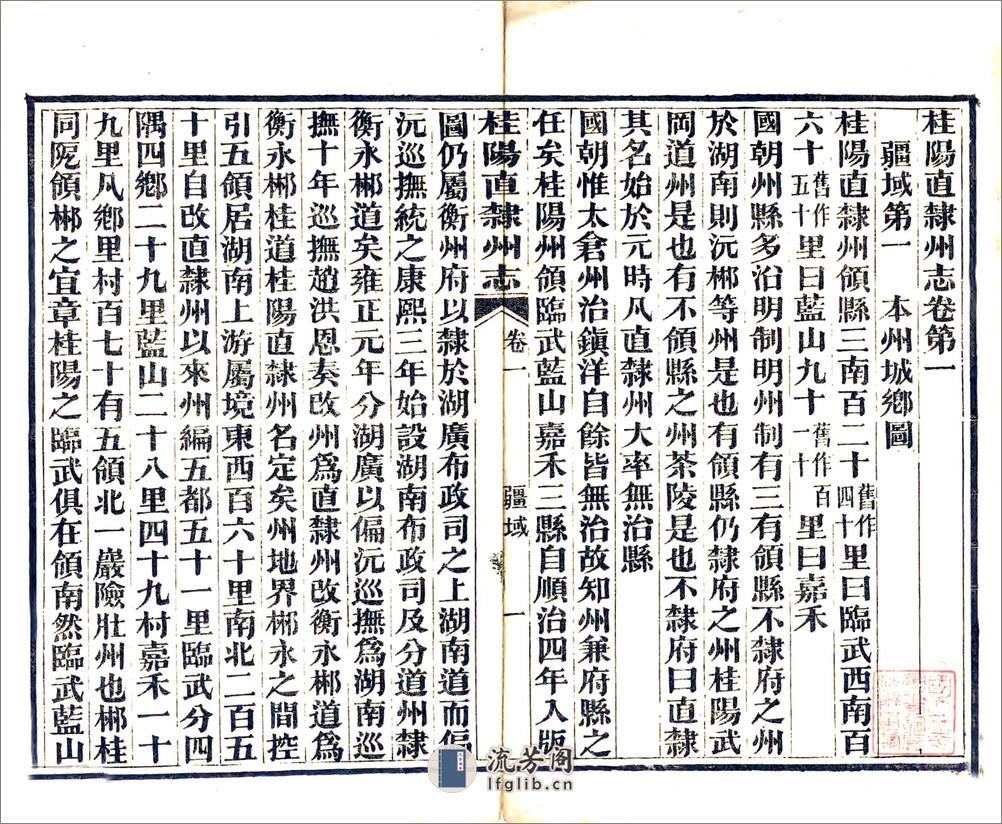 桂陽直隸州志卷第一
疆域第一　本州城鄉圖
桂陽直隸州領縣三南百二十舊作四十里曰臨武西南百
六十舊作五十里曰藍山九十舊作百一十里曰嘉禾
國朝州縣多沿明制明州制有三有領縣不隸府之州
於湖南則沅郴等州是也有領縣仍隸府之州桂陽武
岡道州是也有不領縣之州茶陵是也不隸府曰直隸
其名始於元時凡直隸州大率無治縣
國朝惟太倉州治鎭洋自餘皆無治故知州兼府縣之
任矣桂陽州領臨武藍山嘉禾三縣自順治四年入版
桂陽直隸州志　卷一　疆域　一
圖仍屬衡州府以隸於湖廣布政司之上湖南道而偏
沅巡撫統之康熙三年始設湖南布政司及分道州隸
衡永郴道矣雍正元年分湖廣以偏沅巡撫爲湖南巡
撫十年巡撫趙洪恩奏改州爲直隸州改衡永郴道爲
衡永郴桂道桂陽直隸州名定矣州地界郴永之間控
引五領居湖南上游屬境東西百六十里南北二百五
十里自改直隸州以來州編五都五十一里臨武分四
隅四鄉二十九里藍山二十八里四十九村嘉禾一十
九里凡鄉里村百七十有五領北一嚴險壯州也郴桂
同阨領郴之宜章桂陽之臨武俱在領南然臨武藍山
流芳阁
lfglib.cn